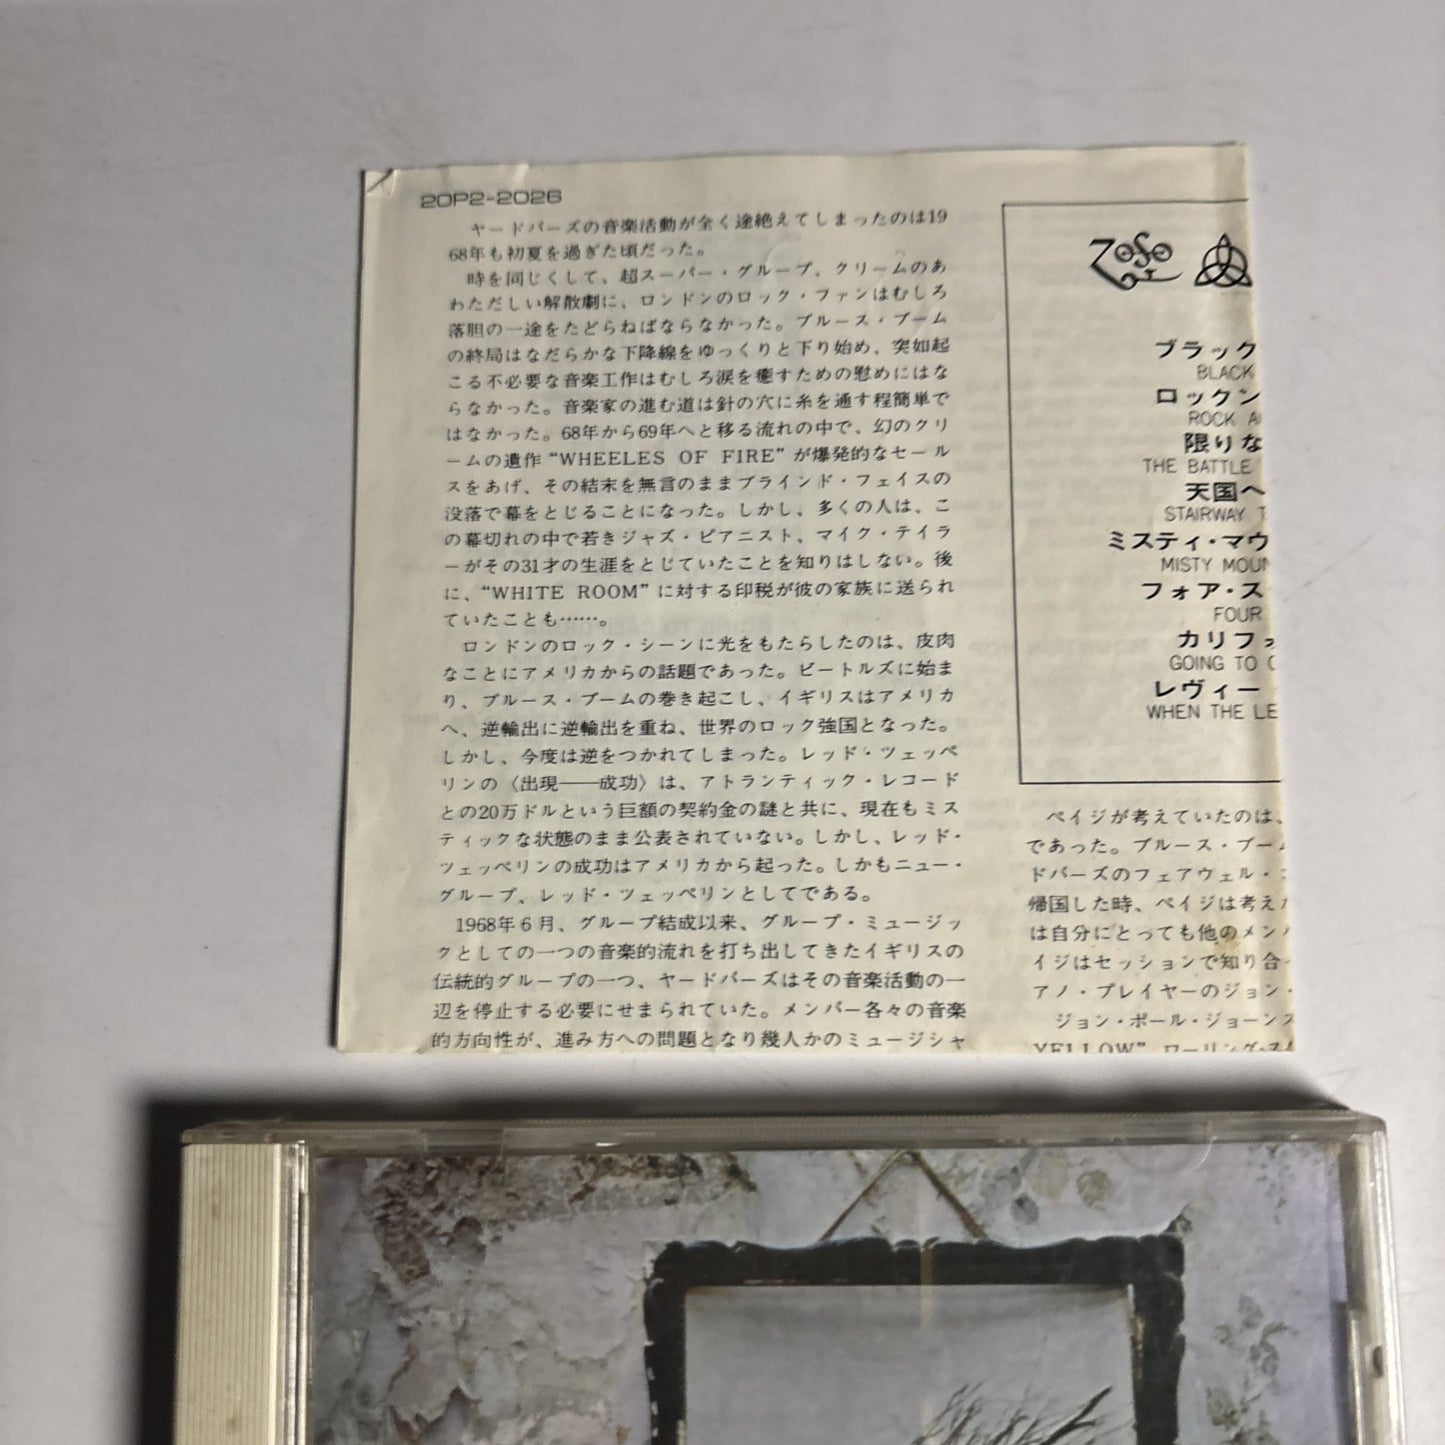 20P2-2026
ヤードバーズの音楽活動が全く途絶えてしまったのは19
68年も初夏を過ぎた頃だった。
時を同じくして、超スーパー・グループ、クリームのあ
わただしい解散劇に、ロンドンのロック・ファンはむしろ
落胆の一途をたどらねばならなかった。ブルース・ブーム
の終局はなだらかな下降線をゆっくりと下り始め、突如起
こる不必要な音楽工作はむしろ涙を癒すための慰めにはな
らなかった。音楽家の進む道は針の穴に糸を通す程簡単で
はなかった。68年から69年へと移る流れの中で、幻のクリ
ームの遺作“WHEELES OF FIRE”が爆発的なセール
スをあげ、その結末を無言のままブラインド・フェイスの
没落で幕をとじることになった。しかし、多くの人は、こ
の幕切れの中で若きジャズ・ピアニスト、マイク・テイラ
ーがその31才の生涯をとじていたことを知りはしない。後
に、“WHITE ROOM”に対する印税が彼の家族に送られ
ていたことも……。
ロンドンのロック・シーンに光をもたらしたのは、皮肉
なことにアメリカからの話題であった。ビートルズに始ま
り、ブルース・ブームの巻き起こし、イギリスはアメリカ
へ、逆輸出に逆輸出を重ね、世界のロック強国となった。
しかし、今度は逆をつかれてしまった。レッド・ツェッペ
リンの〈出現——成功〉は、アトランティック・レコード
との20万ドルという巨額の契約金の謎と共に、現在もミス
ティックな状態のまま公表されていない。しかし、レッド・
ツェッペリンの成功はアメリカから起った。しかもニュー・
グループ、レッド・ツェッペリンとしてである。
1968年6月、グループ結成以来、グループ・ミュージッ
クとしての一つの音楽的流れを打ち出してきたイギリスの
伝統的グループの一つ、ヤードバーズはその音楽活動の一
辺を停止する必要にせまられていた。メンバー各々の音楽
的方向性が、進み方への問題となり幾人かのミュージシャ
ZoSo
ブラック
BLACK
ロックン
ROCK A
限りな
THE BATTLE
天国へ
STAIRWAY T
ミスティ・マウ
MISTY MOUN
フォア・ス
FOUR
カリフォ
GOING TO C
レヴィー
WHEN THE LE
ペイジが考えていたのは、
であった。ブルース・ブーム
ドバーズのフェアウェル・
帰国した時、ペイジは考え
は自分にとっても他のメン
イジはセッションで知り合
アノ・プレイヤーのジョン・
ジョン・ポール・ジョーンズ
YELLOW” ローリング・